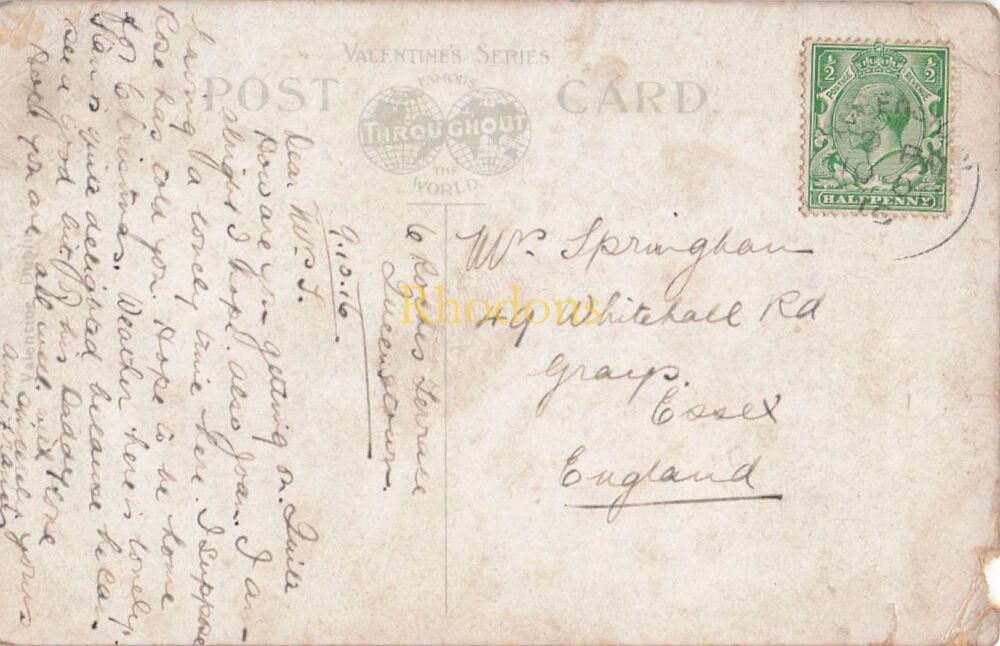 VALENTINE'S SERIES
POST CARD.
FAMOUS
THROUGHOUT
THE
WORLD.
½ ½
POSTAGE REVENUE
HALFPENNY
Mrs Springham
49 Whitehall Rd
Grays.
Essex
England
Rhodons
6 Roches Terrace
Queenstown.
9.10.16
Dear Mrs S.
How are you getting on. Quite
alright I hope. also Joan. I am
having a lonely time here. I suppose
Rose has told you. Hope to be home
for Christmas. Weather here is lovely.
is quite delighted because he can
see a good bit of his Daddy. One
Hope you are all well. with
sincerely yours
Amy
Valentine